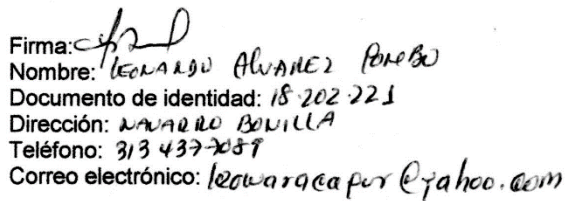 Firma:
Nombre: LEONARDO ALVAREZ POMBO
Documento de identidad: 18.202.221
Dirección: NAVARRO BONILLA
Teléfono: 313 437
Correo electrónico: @yahoo.com